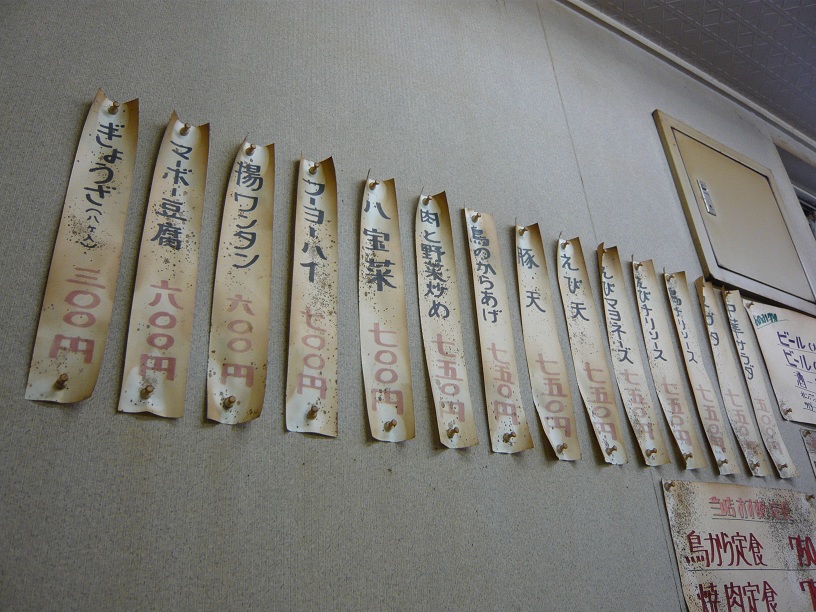 ぎょうざ(八ケ入) 三〇〇円
マーボー豆腐 六〇〇円
揚ワンタン 六〇〇円
フーヨーハイ 七〇〇円
八宝菜 七〇〇円
肉と野菜炒め 七五〇円
鳥のからあげ 七五〇円
豚天 七五〇円
えび天 七五〇円
えびマヨネーズ 七五〇円
えびチリソース 七五〇円
鳥チリソース 七五〇円
七五〇円
中華サラダ 七五〇円
五〇〇円
ビール
ビール
酒
鳥から定食 750
焼肉定食 7